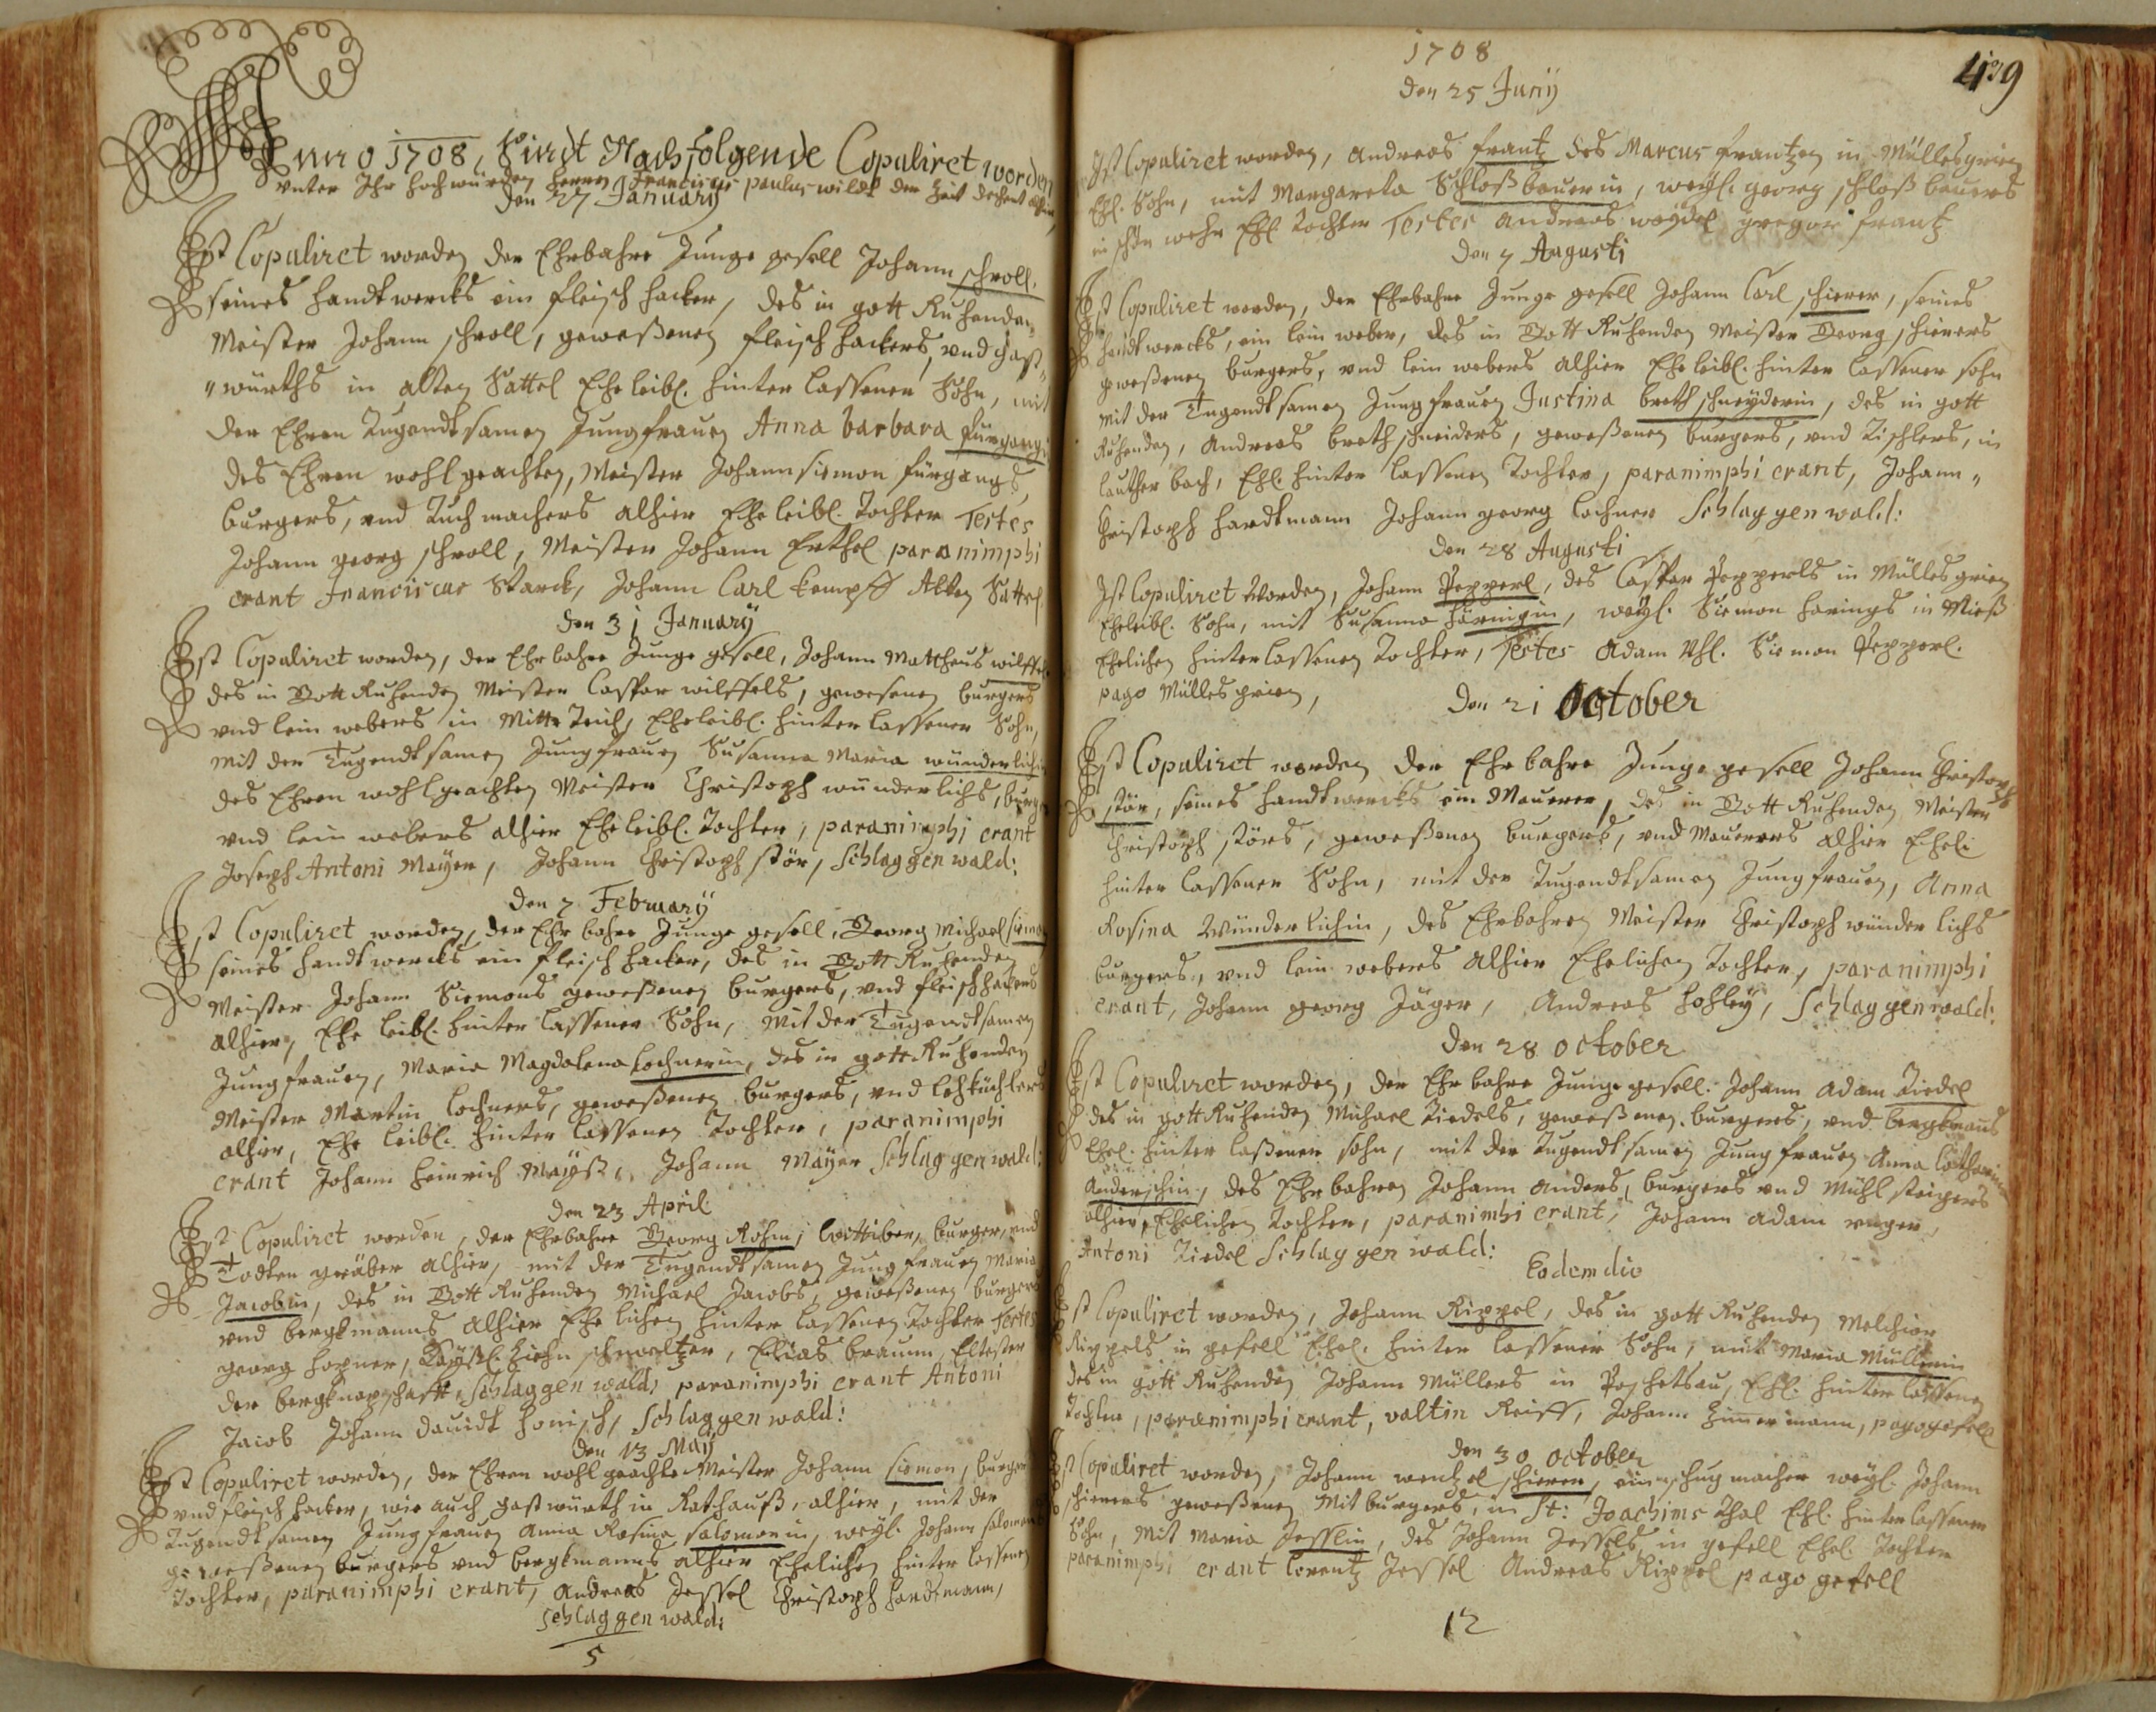 Anno 1708, Sindt Nachfolgende Copuliret worden
unter Ihr hochwürden Herrn Franciscus Paulus wildt der Zeit dechent
den 27 January
Ist Copuliret worden der Ehrbahre Junge gesell Johann schroll,
seines handtwercks ein fleischhacker, des in gott Ruhenden
Meister Johann schroll, geweßenen fleischhackers, und gast„
„würths in alten Sattel Eheleibl. hinterlassener Sohn, mit
der Ehren Tugendtsamen Jungfrauen Anna barbara fürgangin
des Ehren wohlgeachten, Meister Johann siemon fürgangs,
burgers, und Tuchmachers alhier Eheleibl. Tochter Testes
Johann georg schroll, Meister Johann Erthel paranimphi
erant Franciscus Starck, Johann Carl kempff Alten Sattel
den 31 January
Ist Copuliret worden, der Ehrbahre Junge gesell, Johann Mattheus wilffel
des in Gott Ruhenden Meister Caspar wilffels, gewesenen burgers
und leinwebers in Mitterteich, Eheleibl. hinterlassener Sohn,
mit der Tugendtsamen Jungfrauen Susanna Maria wünderlichin
des Ehren wohlgeachten Meister Christoph wünderlichs, burgers
und leinwebers alhier Eheleibl. Tochter, paranimphi erant
Joseph Antoni Mayer, Johann Christoph stör, Schlaggenwald:
den 7 February
Ist Copuliret worden, der Ehrbahre Junge gesell, Georg Michael siemon
seines handtwercks ein fleischhacker, des in Gott Ruhenden
Meister Johann Siemons geweßenen burgers, und fleischhackers
alhier, Eheleibl. hinterlassener Sohn, mit der Tugendtsamen
Jungfrauen, Maria Magdalena lochnerin, des in gott Ruhenden
Meister Martin lochners, geweßenen burgers, und lebküchlers
alhier, Eheleibl. hinterlassenen Tochter, paranimphi
erant Johann Heinrich Mayß, Johann Mayer Schlaggenwald:
den 23 April
Ist Copuliret worden, der Ehrbahre Georg Rohm, wittiber, burger, und
Todtengräber alhier, mit der Tugendtsamen Jungfrauen Maria
Jacobin, des in Gott Ruhenden Michael Jacobs, geweßenen burgers
und bergkmanns alhier Ehelichen hinterlassenen Tochter testes
georg hopner, Kayßl. Ziehnschmeltzer, Elias braunn, Eltester
der bergknapschafft, Schlaggenwald, paranimphi erant Antoni
Jacob Johann davidt honisch, Schlaggenwald:
den 13 May
Ist Copuliret worden, der Ehren wohlgeachte Meister Johann siemon, burger
und fleischhacker, wie auch gastwürth in Rathauß, alhier, mit der
Tugendtsamen Jungfrauen Anna Rosina salomonin, weyl. Johann salomons
geweßenen burgers und bergkmanns alhier Ehelichen hinterlassenen
Tochter, paranimphi erant, Andreas Jessel Christoph handtmann,
Schlaggenwald:
5
1708
439
den 25 Juny
Ist Copuliret worden, Andreas frantz des Marcus frantzen in Müllesgrien
Ehl. Sohn, mit Margareta Schloßbauerin, weyl. georg schloßbauers
in schönwehr Ehl Tochter Testes Andreas weydel gregor frantz
den 7 Augusti
Ist Copuliret worden, der Ehrbahre Junge gesell Johann Carl schierer, seines
handtwercks, ein leinweber, des in Gott Ruhenden Meister Georg schierers
geweßenen burgers, und leinwebers alhier Eheleibl. hinterlassener sohn
mit der Tugendtsamen Jungfrauen Justina brethschneyderin, des in gott
Ruhenden, Andreas brethschneiders, geweßenen burgers, und Tischlers, in
lautherbach, Ehl. hinterlassenen Tochter, paranimphi erant, Johann„
Christoph hardtmann Johann georg lochner Schlaggenwald:
den 28 Augusti
Ist Copuliret Worden, Johann Pepperl, des Caspar Pepperls in Müllesgrien
Eheleibl. Sohn, mit Susanna häringin, weyl. Siemon harings in Mieß
Ehelichen hinterlassenen Tochter, Testes Adam Uhl. Siemon Pepperl.
pago Müllesgrien,
den 21 October
Ist Copuliret worden der Ehrbahre Junge gesell Johann Christoph
stör, seines handtwercks ein Mauerer, des in Gott Ruhenden Meister
Christoph störs, geweßenen burgers, und Mauerers alhier Eheli
hinterlassener Sohn, mit der Tugendtsamen Jungfrauen, Anna
Rosina Wünderlichin, des Ehrbahren Meister Christoph wünderlichs
burgers, und leinwebers alhier Ehelichen Tochter, paranimphi
erant, Johann georg Jäger, Andreas hohley, Schlaggenwald:
den 28 October
Ist Copuliret worden, der Ehrbahre Junge gesell. Johann Adam Riedel
des in gott Ruhenden Michael Riedels, geweßenen burgers, und bergkmanns
Ehel. hinterlaßener sohn, mit der Tugendtsamen Jungfrauen Anna Catharina
Anderschin, des Ehrbahren Johann Anders, burgers und Mühlsteigers
alhier, Ehelichen Tochter, paranimhi erant, Johann Adam unger,
Antoni Riedel Schlaggenwald:
Eodem die
Ist Copuliret worden, Johann Rippel, des in gott Ruhenden Melchior
Rippels in gefell Ehel. hinterlassener Sohn, mit Maria Müllerin
des in gott Ruhenden Johann Müllers in Poschetzau, Ehl. hinterlassenen
Tochter, paranimphi erant, valtin Reiff, Johann Zimmermann, pago gefell
den 30 October
Ist Copuliret worden, Johann wenhel schierer, ein schugmacher weyl. Johann
schierers geweßenen Mitburgers, in St: Joachims Thal Ehl. hinterlassener
Sohn, mit Maria Jesslin, des Johann Jessels, in gefell Ehel. Tochter
paranimphi erant lorentz Jessel Andreas Rippel pago gefell
12